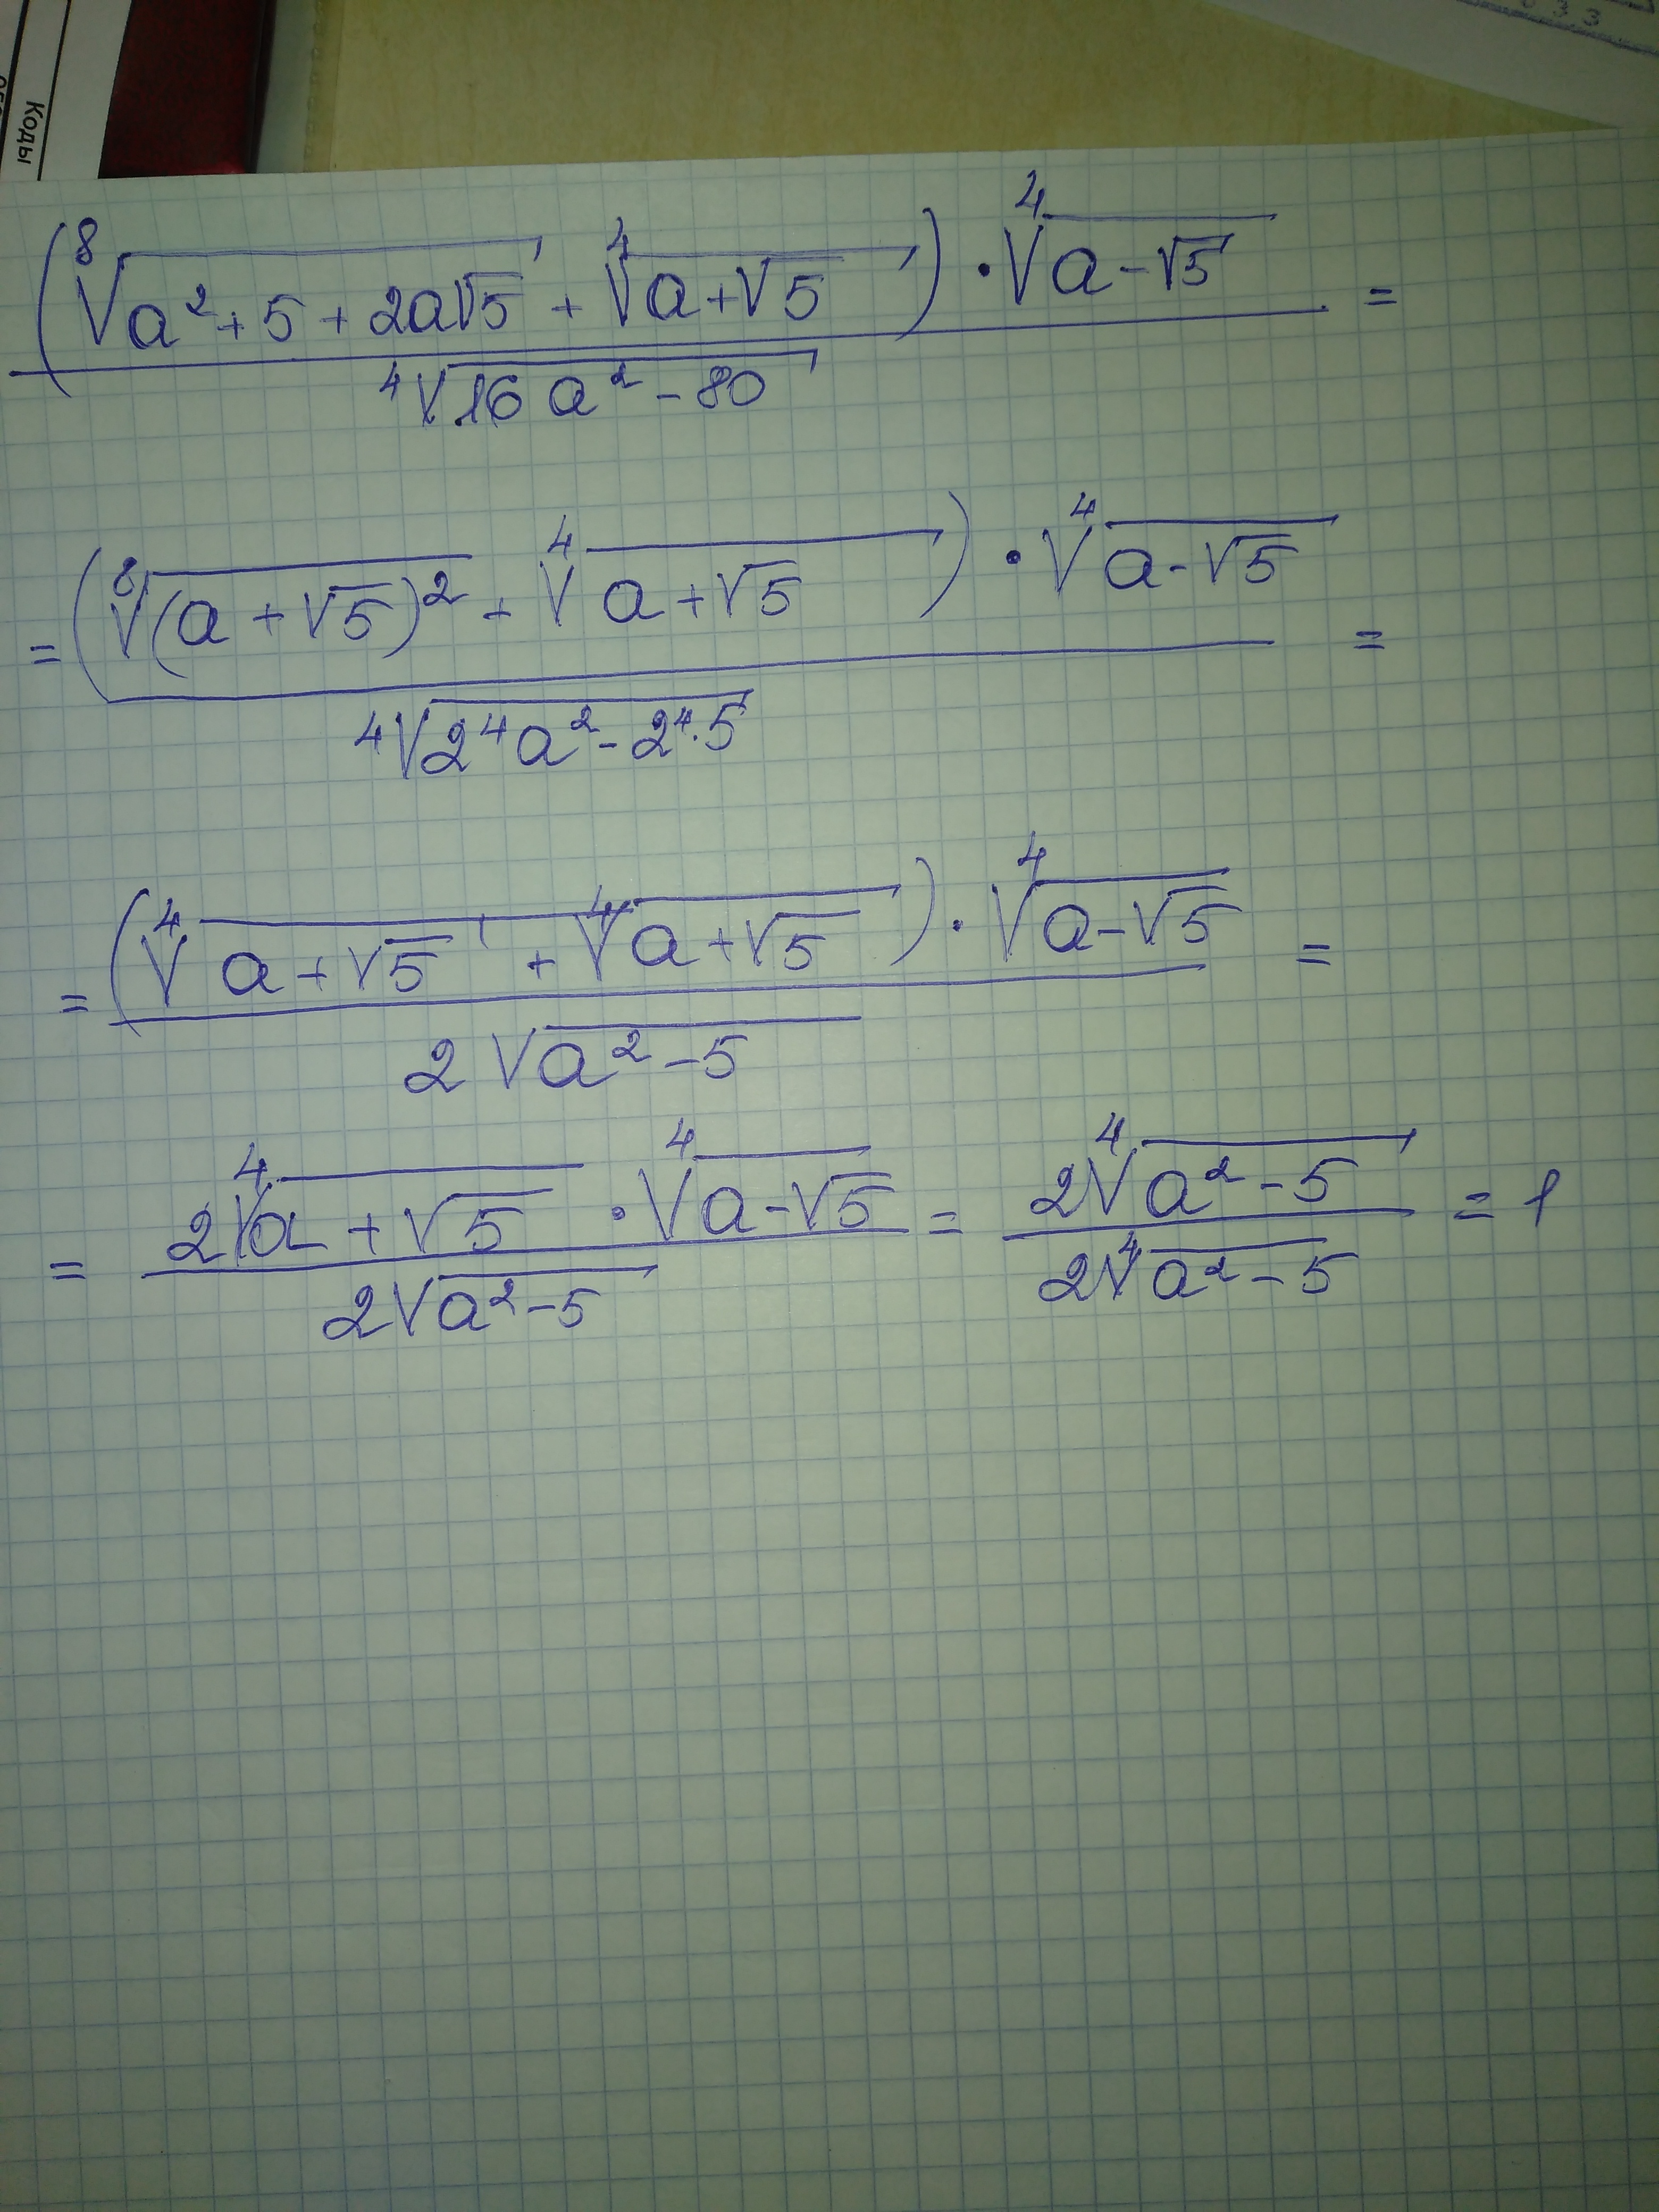 Коды
(⁸√(a²+5+2a√5) + ⁴√(a+√5)) · ⁴√(a-√5) / ⁴√(16a²-80) =
= (⁸√((a+√5)²) + ⁴√(a+√5)) · ⁴√(a-√5) / ⁴√(2⁴a²-2⁴·5) =
= (⁴√(a+√5) + ⁴√(a+√5)) · ⁴√(a-√5) / 2√(a²-5) =
= 2⁴√(a+√5) · ⁴√(a-√5) / 2√(a²-5) = 2⁴√(a²-5) / 2⁴√(a²-5) = 1